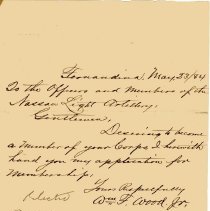 Fernandina, May 23/84
To the Officers and Members of the
Nassau Light Artillery.
Gentlemen,
Desiring to become
a Member of your Corps I herewith
hand you my application for
Membership.
Yours Respectfully
Elected
Wm F. Wood Jr.